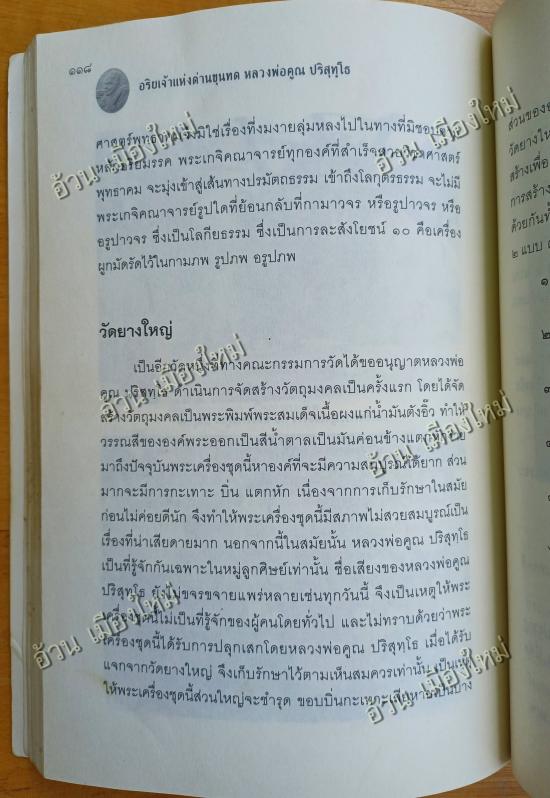 ๑๑๘
อริยเจ้าแห่งด่านขุนทด หลวงพ่อคูณ ปริสุทฺโธ
ศาสตร์พุทธาคมจึงมิใช่เรื่องที่งมงายลุ่มหลงไปในทางที่มิชอบ
พระเกจิคณาจารย์ทุกองค์ที่สำเร็จ
พุทธาคม จะมุ่งเข้าสู่เส้นทางปรมัตถธรรม เข้าถึงโลกุตรธรรม จะไม่มี
พระเกจิคณาจารย์รูปใดที่ย้อนกลับที่กามาวจร หรือรูปาวจร หรือ
อรูปาวจร ซึ่งเป็นโลกียธรรม ซึ่งเป็นการละสังโยชน์ ๑๐ คือเครื่อง
ผูกมัดรัดไว้ในกามภพ รูปภพ อรูปภพ
วัดยางใหญ่
เป็นอีกวัดหนึ่งที่ทางคณะกรรมการวัดได้ขออนุญาตหลวงพ่อ
คูณ ปริสุทฺโธ ดำเนินการจัดสร้างวัตถุมงคลเป็นครั้งแรก โดยได้จัด
สร้างวัตถุมงคลเป็นพระพิมพ์พระสมเด็จเนื้อผงแก่น้ำมันตังอิ๊ว ทำให้
วรรณสีขององค์พระออกเป็นสีน้ำตาลเป็นมันค่อนข้างแตกหักง่าย
มาถึงปัจจุบันพระเครื่องชุดนี้หาองค์ที่จะมีความสมบูรณ์ได้ยาก ส่วน
มากจะมีการกะเทาะ บิ่น แตกหัก เนื่องจากการเก็บรักษาในสมัย
ก่อนไม่ค่อยดีนัก จึงทำให้พระเครื่องชุดนี้มีสภาพไม่สวยสมบูรณ์เป็น
เรื่องที่น่าเสียดายมาก นอกจากนี้ในสมัยนั้น หลวงพ่อคูณ ปริสุทฺโธ
เป็นที่รู้จักกันเฉพาะในหมู่ลูกศิษย์เท่านั้น ชื่อเสียงของหลวงพ่อคูณ
ปริสุทฺโธ ยังไม่ขจรขจายแพร่หลายเช่นทุกวันนี้ จึงเป็นเหตุให้พระ
เครื่องชุดนี้ไม่เป็นที่รู้จักของผู้คนโดยทั่วไป และไม่ทราบด้วยว่าพระ
เครื่องชุดนี้ได้รับการปลุกเสกโดยหลวงพ่อคูณ ปริสุทฺโธ เมื่อได้รับ
แจกจากวัดยางใหญ่ จึงเก็บรักษาไว้ตามเห็นสมควรเท่านั้น เป็นเหตุ
ให้พระเครื่องชุดนี้ส่วนใหญ่จะชำรุด ขอบบิ่นกะเทาะเสียหายเป็นบาง
ส่วนของ
วัดยางให
สร้างเพื่อ
การสร้าง
ด้วยกันทั้
๒ แบบ
๑
๒
๓
อ้วน เมืองใหม่
อ้วน เมืองใหม่
อ้วน เมืองใหม่
อ้วน เมืองใหม่
อ้วน เมืองใหม่
อ้วน เมืองใหม่